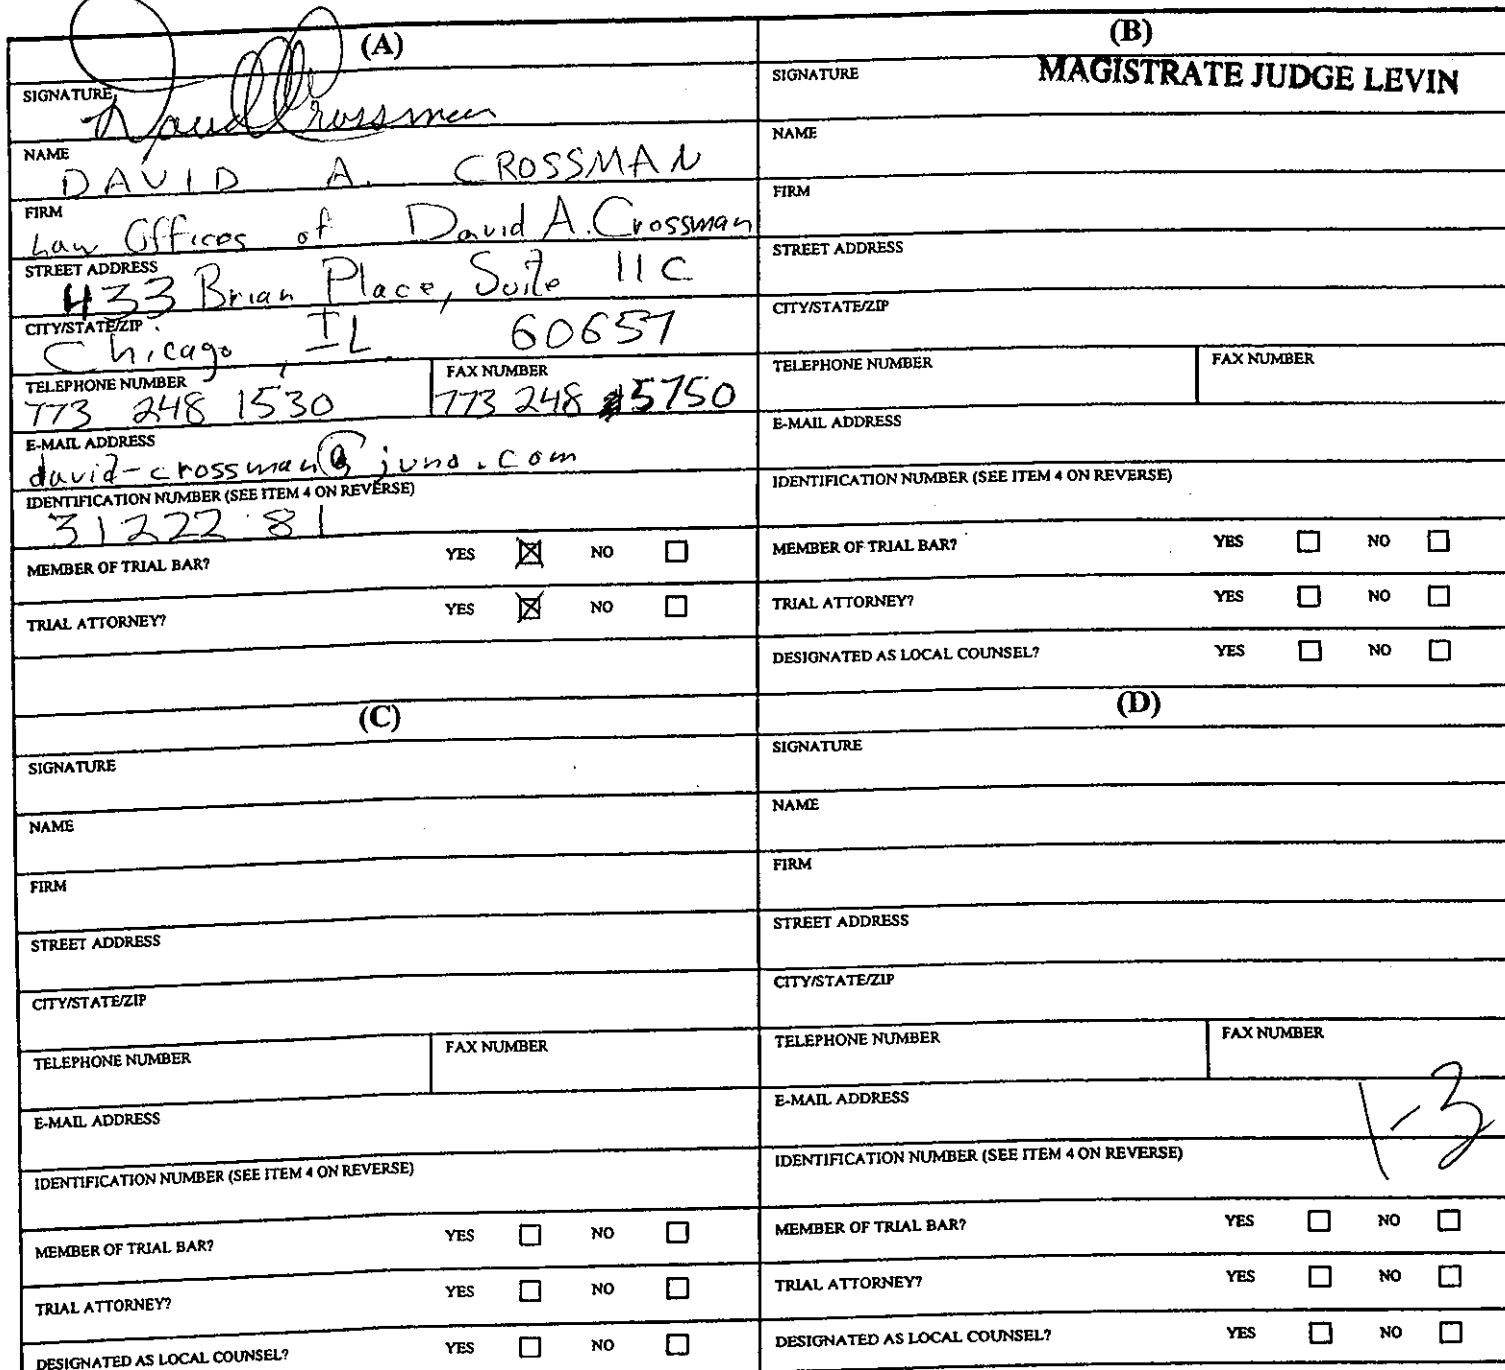 (A)
SIGNATURE
David Crossman
NAME
DAVID A. CROSSMAN
FIRM
Law Offices of David A. Crossman
STREET ADDRESS
433 Brian Place, Suite 11C
CITY/STATE/ZIP
Chicago, IL 60657
TELEPHONE NUMBER
773 248 1530
FAX NUMBER
773 248 5750
E-MAIL ADDRESS
david-crossman@juno.com
IDENTIFICATION NUMBER (SEE ITEM 4 ON REVERSE)
3122281
MEMBER OF TRIAL BAR? YES NO
TRIAL ATTORNEY? YES NO
(B)
MAGISTRATE JUDGE LEVIN
SIGNATURE
NAME
FIRM
STREET ADDRESS
CITY/STATE/ZIP
TELEPHONE NUMBER
FAX NUMBER
E-MAIL ADDRESS
IDENTIFICATION NUMBER (SEE ITEM 4 ON REVERSE)
MEMBER OF TRIAL BAR? YES NO
TRIAL ATTORNEY? YES NO
DESIGNATED AS LOCAL COUNSEL? YES NO
(C)
SIGNATURE
NAME
FIRM
STREET ADDRESS
CITY/STATE/ZIP
TELEPHONE NUMBER
FAX NUMBER
E-MAIL ADDRESS
IDENTIFICATION NUMBER (SEE ITEM 4 ON REVERSE)
MEMBER OF TRIAL BAR? YES NO
TRIAL ATTORNEY? YES NO
DESIGNATED AS LOCAL COUNSEL? YES NO
(D)
SIGNATURE
NAME
FIRM
STREET ADDRESS
CITY/STATE/ZIP
TELEPHONE NUMBER
FAX NUMBER
E-MAIL ADDRESS
1-3
IDENTIFICATION NUMBER (SEE ITEM 4 ON REVERSE)
MEMBER OF TRIAL BAR? YES NO
TRIAL ATTORNEY? YES NO
DESIGNATED AS LOCAL COUNSEL? YES NO